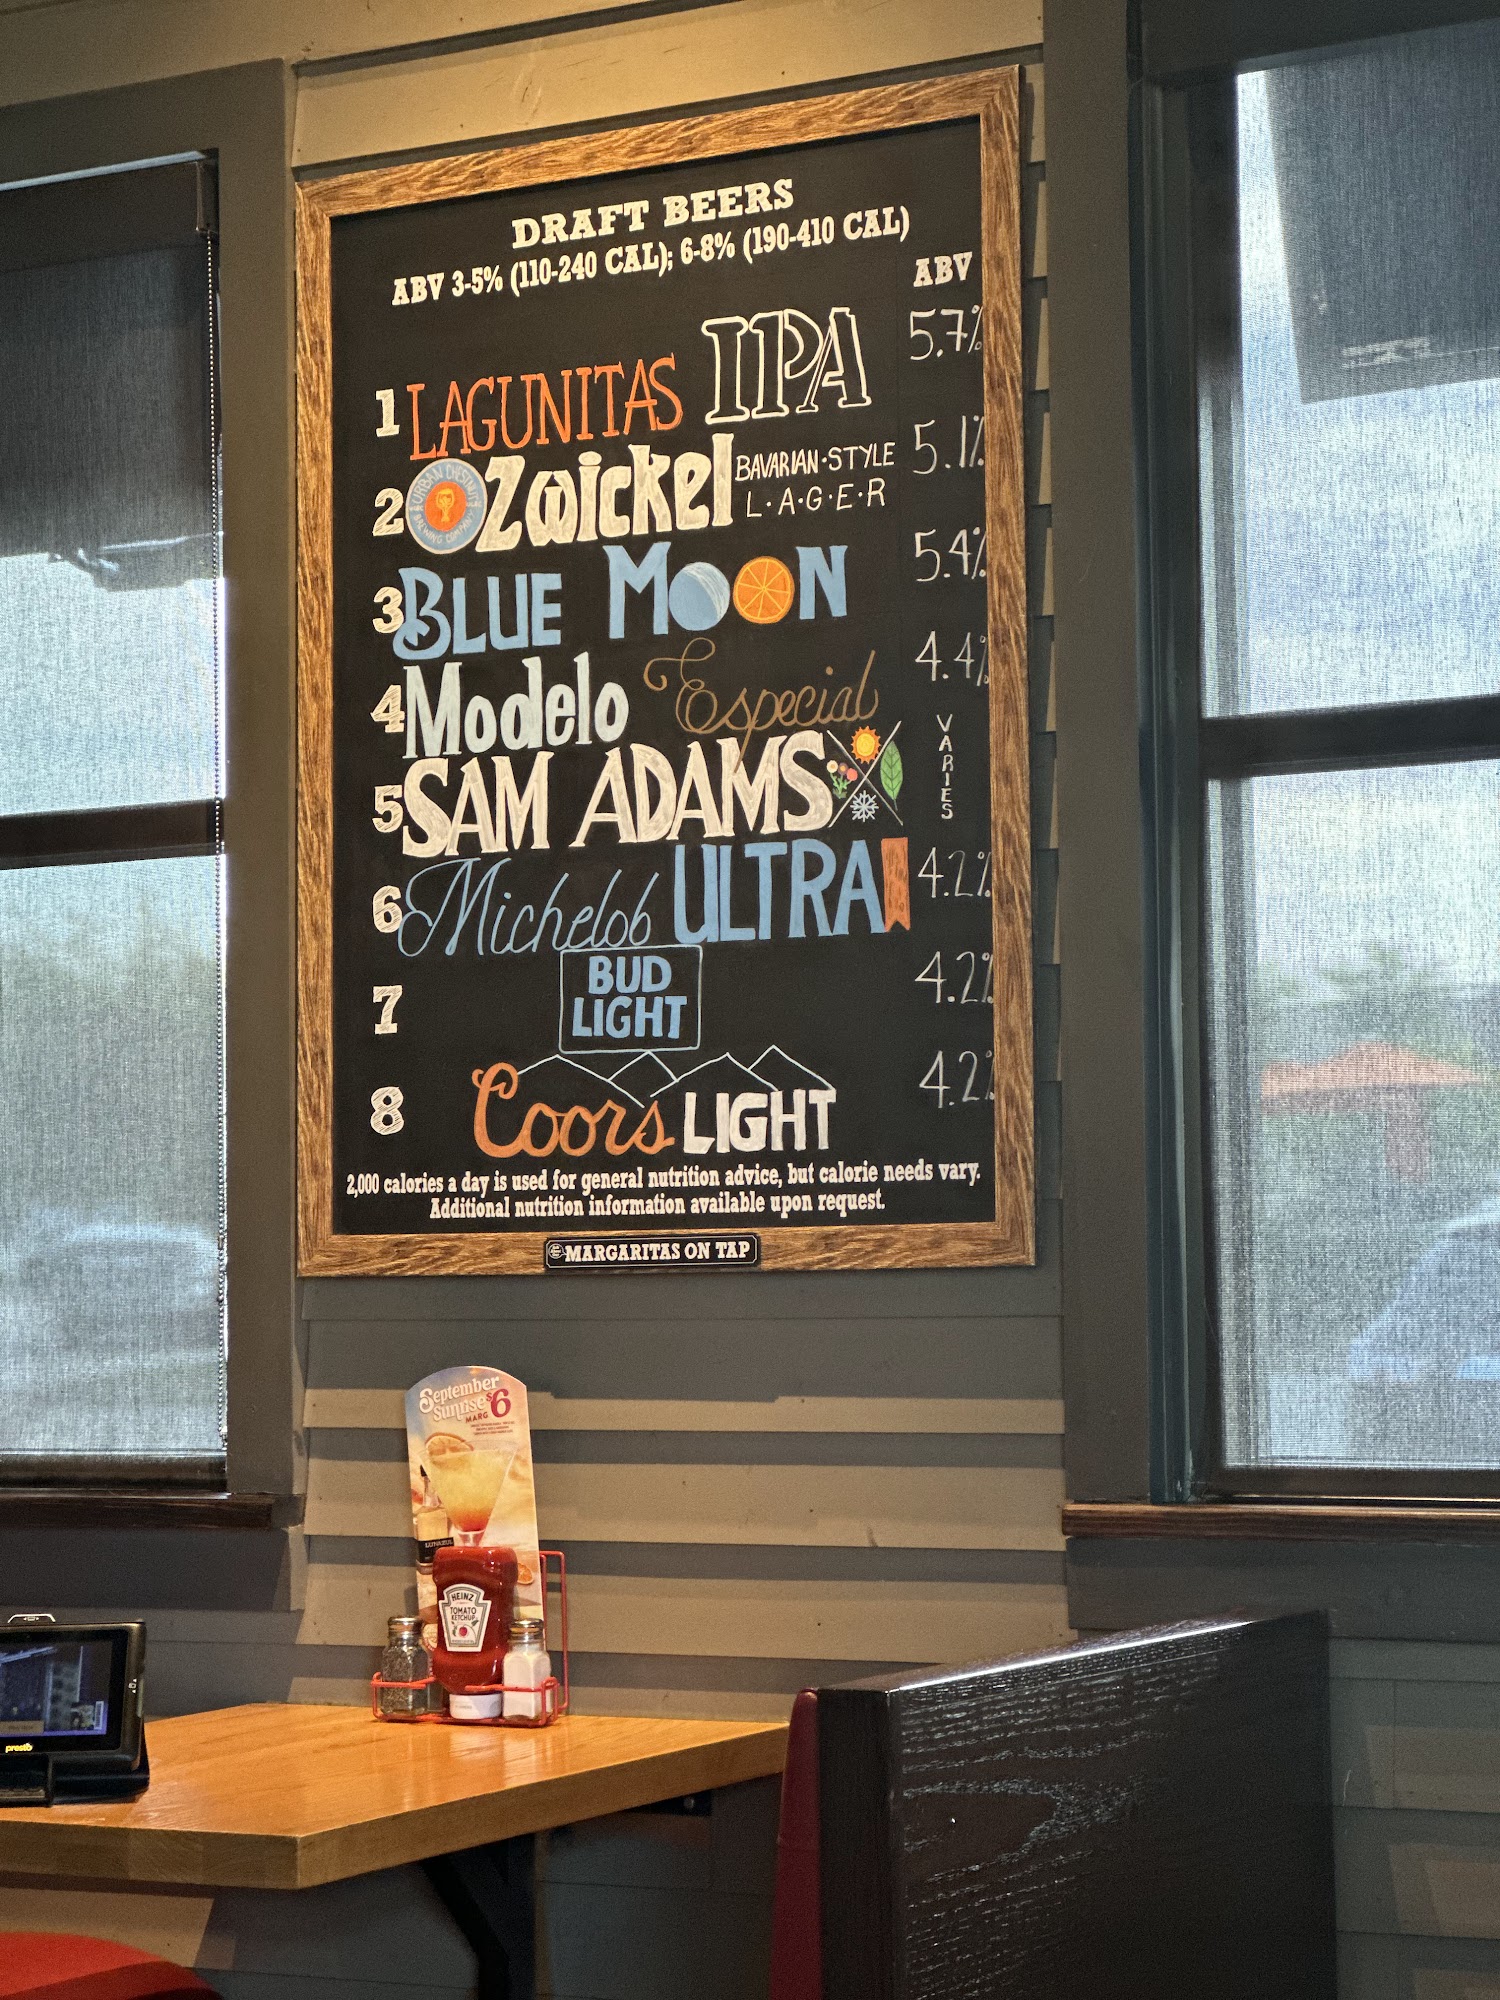 DRAFT BEERS
ABV 3-5% (110-240 CAL); 6-8% (190-410 CAL)
ABV
1 LAGUNITAS IPA 5.7%
2 URBAN CHESTNUT BREWING COMPANY Zwickel BAVARIAN·STYLE L·A·G·E·R 5.1%
3 BLUE MOON 5.4%
4 Modelo Especial 4.4%
5 SAM ADAMS VARIES
6 Michelob ULTRA 4.2%
7 BUD LIGHT 4.2%
8 Coors LIGHT 4.2%
2,000 calories a day is used for general nutrition advice, but calorie needs vary.
Additional nutrition information available upon request.
MARGARITAS ON TAP
September
Sunrise $6
MARG
LUNAZUL
HEINZ
TOMATO
KETCHUP
presto